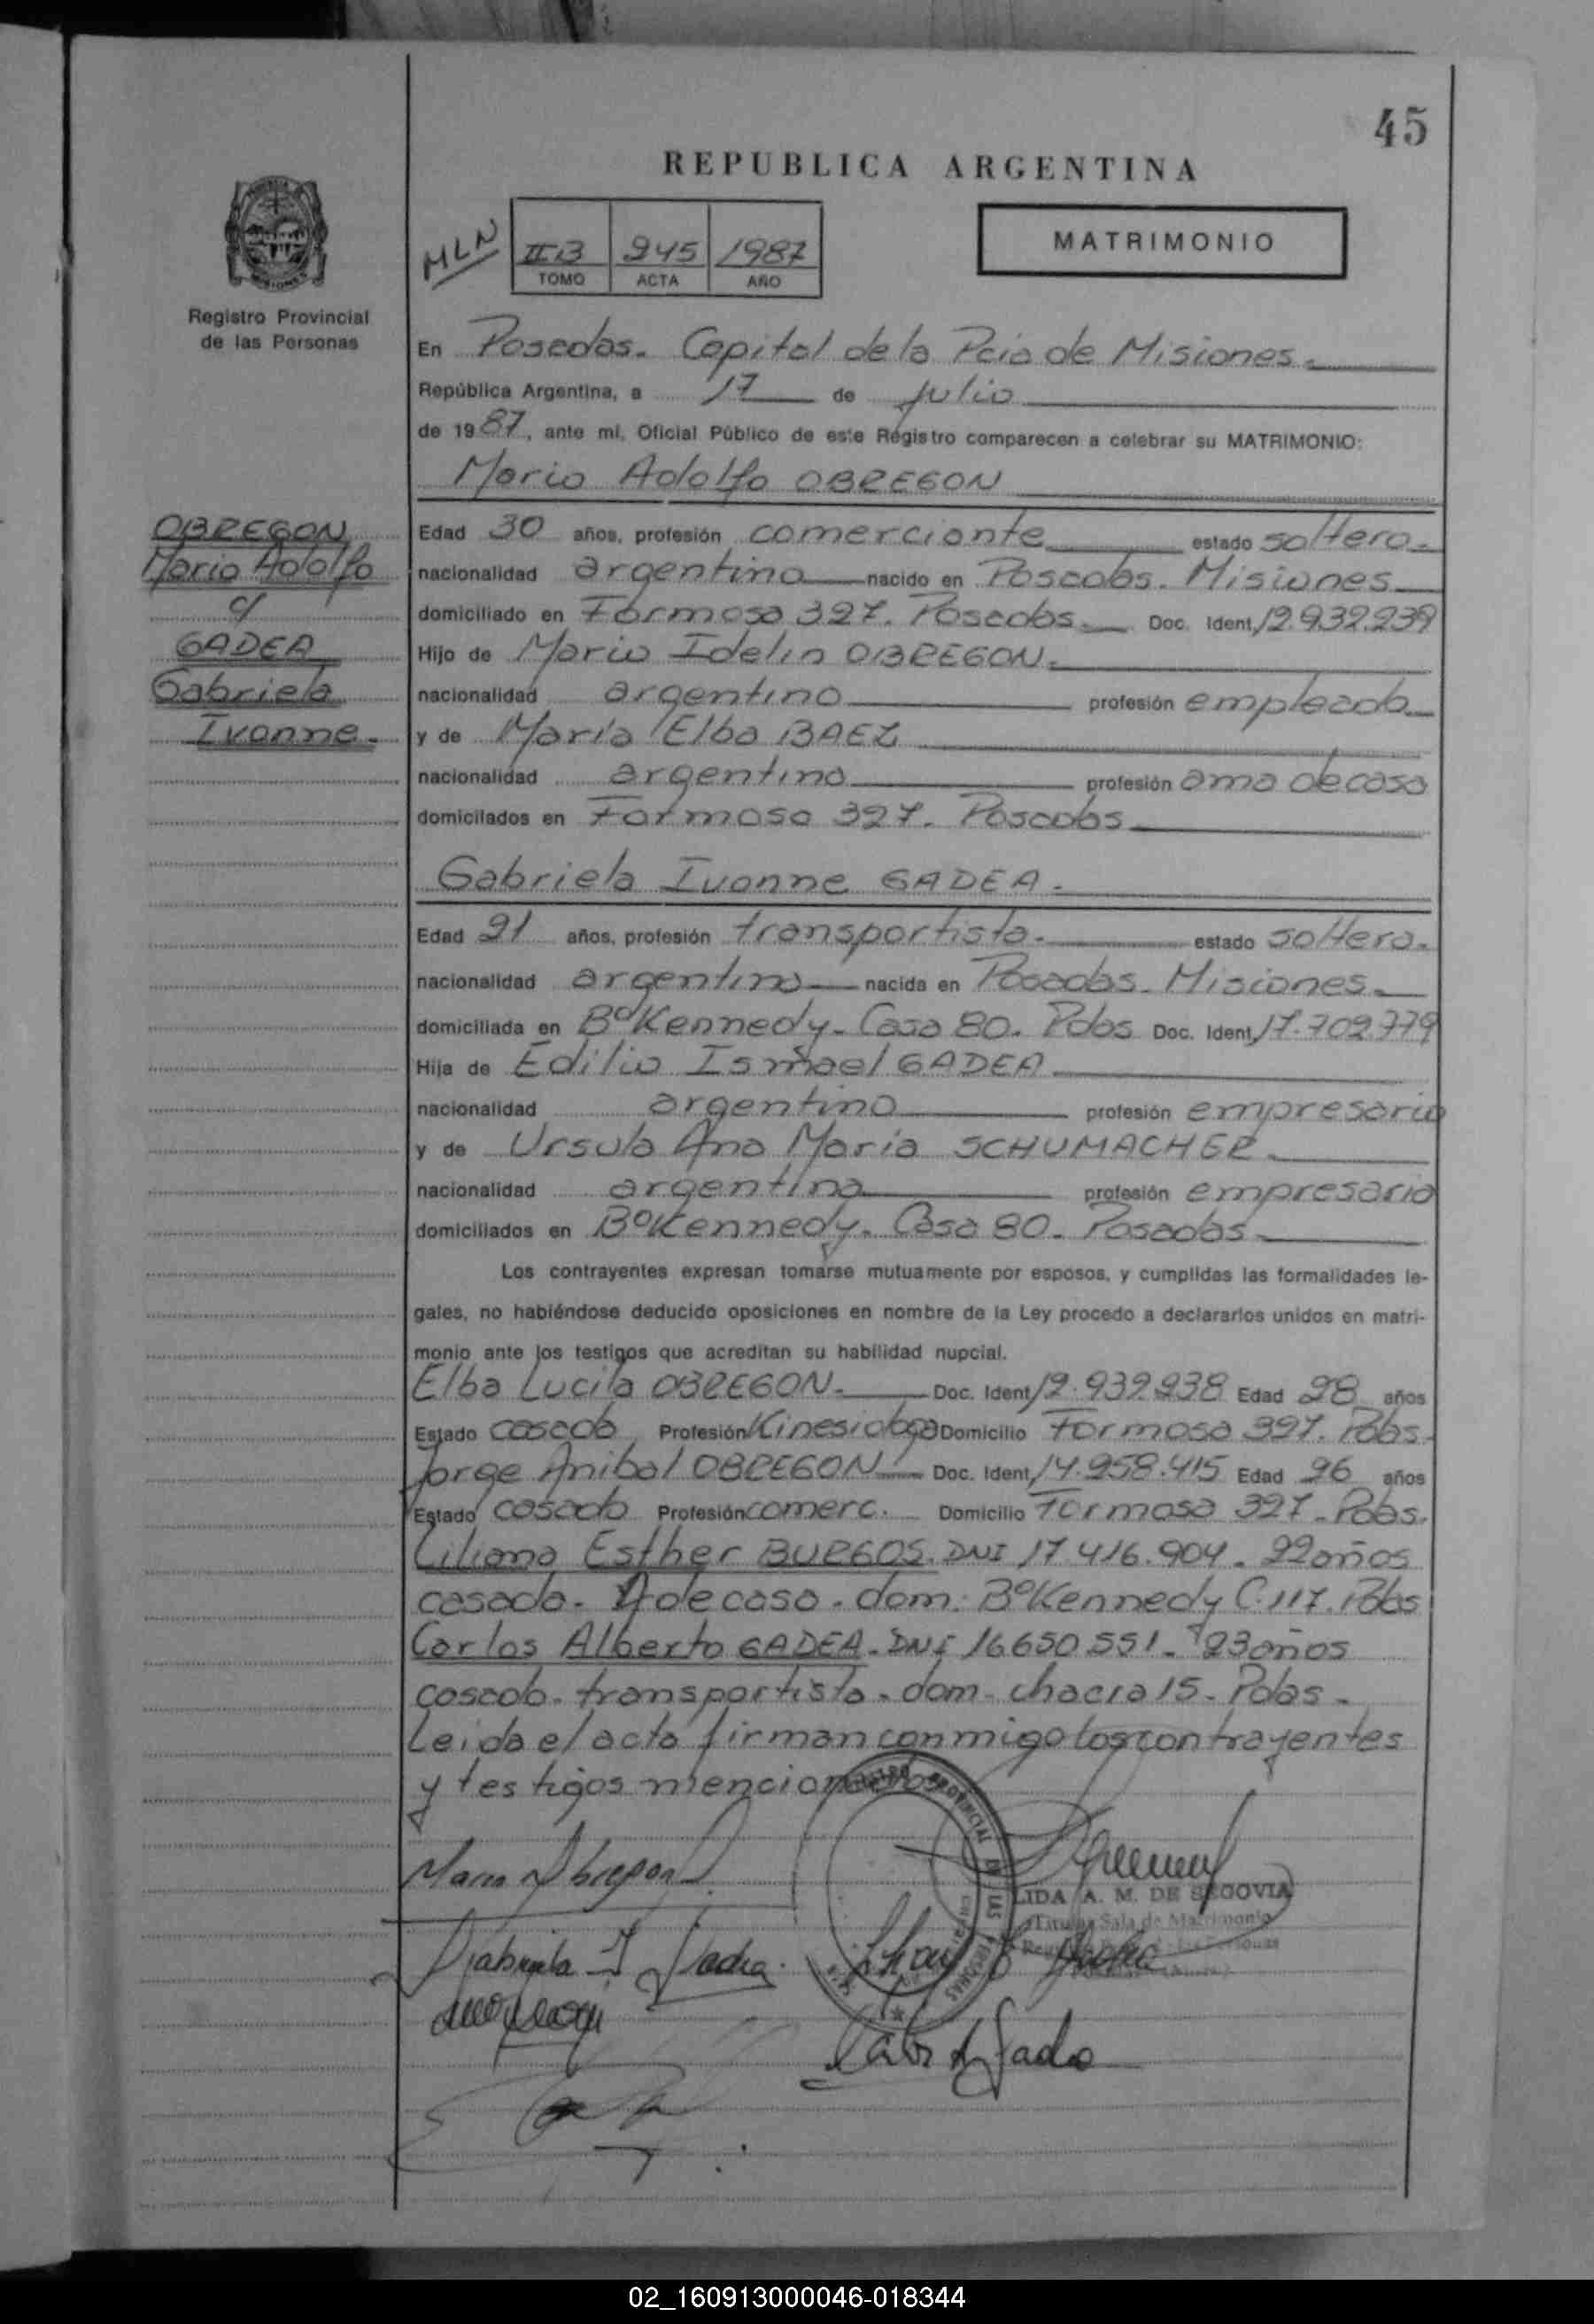 45
REPUBLICA ARGENTINA
MLN
II B 245 1987
TOMO ACTA AÑO
MATRIMONIO
Registro Provincial
de las Personas
En Posadas. Capital de la Pcia de Misiones.
República Argentina, a 17 de Julio
de 1987, ante mí, Oficial Público de este Registro comparecen a celebrar su MATRIMONIO:
Mario Adolfo OBREGON
OBREGON
Mario Adolfo
c/
GADEA
Gabriela
Ivonne.
Edad 30 años, profesión comerciante estado soltero.
nacionalidad argentino nacido en Posadas. Misiones
domiciliado en Formosa 327. Posadas. Doc. Ident. 12.932.239
Hijo de Mario Idelin OBREGON.
nacionalidad argentino profesión empleado
y de María Elba BAEZ
nacionalidad argentina profesión ama de casa
domicilados en Formosa 327. Posadas
Gabriela Ivonne GADEA.
Edad 21 años, profesión transportista. estado soltera.
nacionalidad argentina nacida en Posadas. Misiones.
domiciliada en B° Kennedy. Casa 80. Pdas Doc. Ident. 17.702.779
Hija de Edilio Ismael GADEA
nacionalidad argentino profesión empresario
y de Ursula Ana Maria SCHUMACHER.
nacionalidad argentina profesión empresaria
domiciliados en B° Kennedy. Casa 80. Posadas
Los contrayentes expresan tomarse mutuamente por esposos, y cumplidas las formalidades le-
gales, no habiéndose deducido oposiciones en nombre de la Ley procedo a declararlos unidos en matri-
monio ante los testigos que acreditan su habilidad nupcial.
Elba Lucila OBREGON. Doc. Ident. 12.932.238 Edad 28 años
Estado casada Profesión Kinesiologa Domicilio Formosa 327. Pdas.
Jorge Anibal OBREGON Doc. Ident. 14.258.415 Edad 26 años
Estado casado Profesión comerc. Domicilio Formosa 327. Pdas.
Liliana Esther BURGOS. DNI 17 416.904. 22 años
casada. A de casa. dom: B° Kennedy C.117. Pdas
Carlos Alberto GADEA. DNI 16650 551. 23 años
casado. transportista. dom. chacra 15. Pdas.
Leida el acta firman conmigo los contrayentes
y testigos mencionados
Mario Obregon
LIDA A. M. DE SEGOVIA
Titular Sala de Matrimonio
Gabriela I Gadea.
02_160913000046-018344